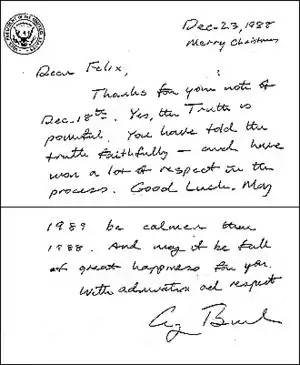 Dec. 23, 1988
Merry Christmas
Dear Felix,
Thanks for your note of
Dec. 18th. Yes, the Truth is
powerful. You have told the
truth faithfully — and have
won a lot of respect in the
process. Good Luck. May
1989 be calmer than
1988. And may it be full
of great happiness for you.
With admiration and respect
Bush